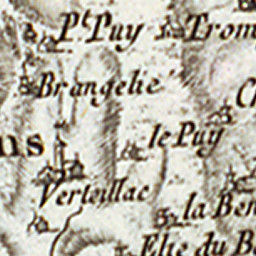 P.t Puy
Trom
Brangelie
C
ns
le Puy
Verteillac
la Ben
Elie du B